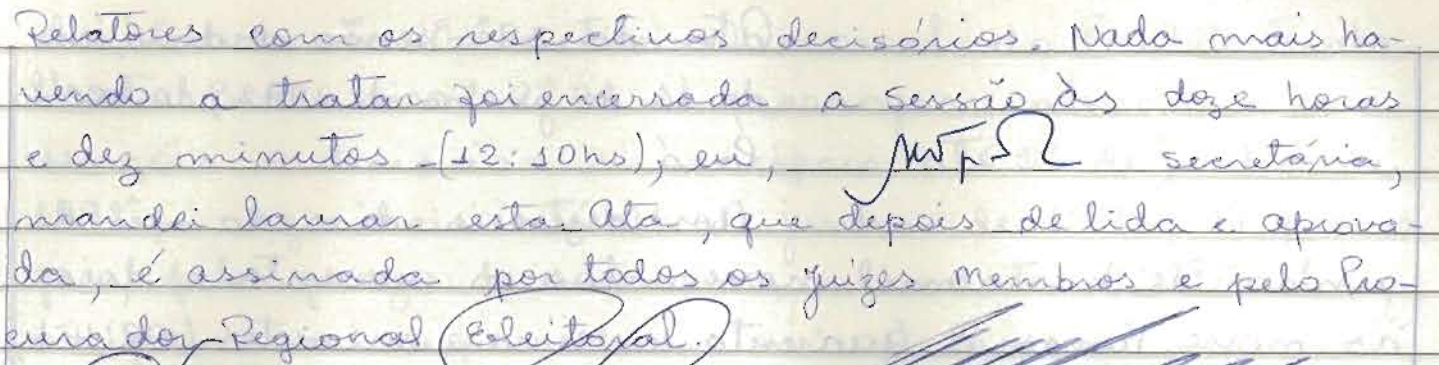 Relatores com os respectivos decisórios. Nada mais ha-
vendo a tratar foi encerrada a sessão às doze horas
e dez minutos (12:10hs), eu, secretária,
mandei lavrar esta Ata, que depois de lida e aprova-
da, é assinada por todos os Juízes Membros e pelo Pro-
curador Regional Eleitoral.